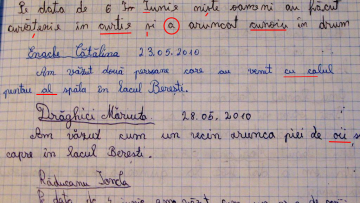 Pe data de 6 Iunie niște oameni au făcut
curățenie in curtie și a aruncat gunoiu in drum
Enache Cătălina 23.05.2010
Am văzut două persoane care au venit cu calul
pentru al spăla în lacul Berești.
Drăghici Măriuța 28.05.2010
Am văzut cum un vecin arunca piei de oii, și
capre in lacul Berești.
Răducanu Ionela
Pe data de 4 iunie am